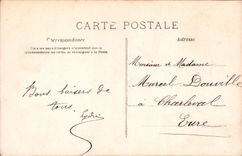 CARTE POSTALE
Correspondance
Adresse
Monsieur et Madame
Marcel Douville
à Charleval
Eure
Bons baisers de
tous.